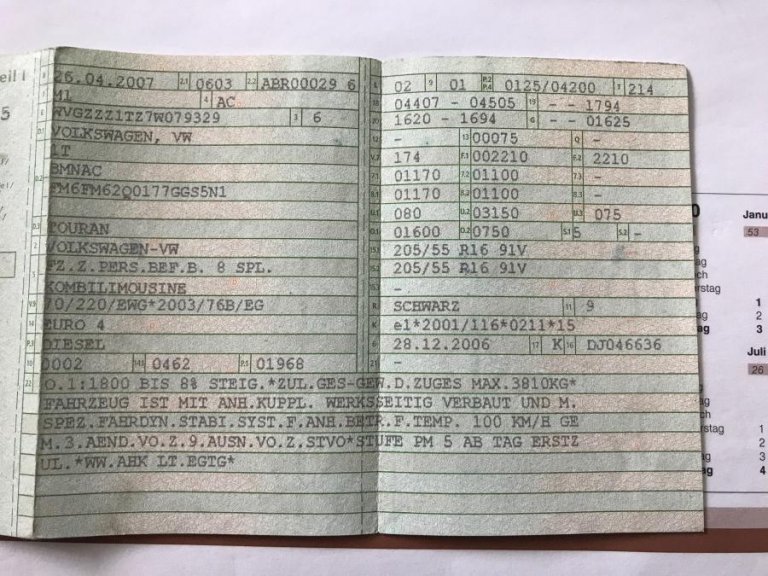 eil I
5
B 26.04.2007 2.1 0603 2.2 ABR00029 6
J M1 4 AC
E WVGZZZ1TZ7W079329 3 6
D.1 VOLKSWAGEN, VW
1T
D.2 BMNAC
FM6FM62Q0177GGS5N1
D.3 TOURAN
2 VOLKSWAGEN-VW
5 FZ.Z.PERS.BEF.B. 8 SPL.
KOMBILIMOUSINE
V.9 70/220/EWG*2003/76B/EG
14 EURO 4
P.3 DIESEL
10 0002 14.1 0462 P.1 01968
22 O.1:1800 BIS 8% STEIG.*ZUL.GES-GEW.D.ZUGES MAX.3810KG*
FAHRZEUG IST MIT ANH.KUPPL. WERKSSEITIG VERBAUT UND M.
SPEZ.FAHRDYN.STABI.SYST.F.ANH.BETR.F.TEMP. 100 KM/H GE
M.3.AEND.VO.Z.9.AUSN.VO.Z.STVO*STUFE PM 5 AB TAG ERSTZ
UL.*WW.AHK LT.EGTG*
L 02 9 01 P.2 P.4 0125/04200 T 214
18 04407 - 04505 19 - - 1794
20 1620 - 1694 G - - 01625
12 - 13 00075 Q -
V.7 174 F.1 002210 F.2 2210
7.1 01170 7.2 01100 7.3 -
8.1 01170 8.2 01100 8.3 -
U.1 080 U.2 03150 U.3 075
O.1 01600 O.2 0750 S.1 5 S.2 -
15.1 205/55 R16 91V
15.2 205/55 R16 91V
15.3 -
R SCHWARZ 11 9
K e1*2001/116*0211*15
6 28.12.2006 17 K 16 DJ046636
21 -
0 Janu
53
ag
ch
erstag 1
ag 2
ag 3
Juli
26
rstag 1
2
3
ag 4